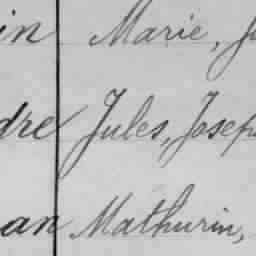 in Marie, J
dre Jules, Josep
an Mathurin,